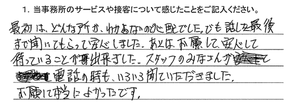 1. 当事務所のサービスや接客について感じたことをご記入ください。
最初は、どんな所か、わからないので心配でした。でも話を最後
まで聞いてもらって安心しました。あとはお願いして安心して
待っていることが出来ました。スタッフのみなさんが
電話の時も、いろいろ聞いていただきました。
お願いして本当によかったです。